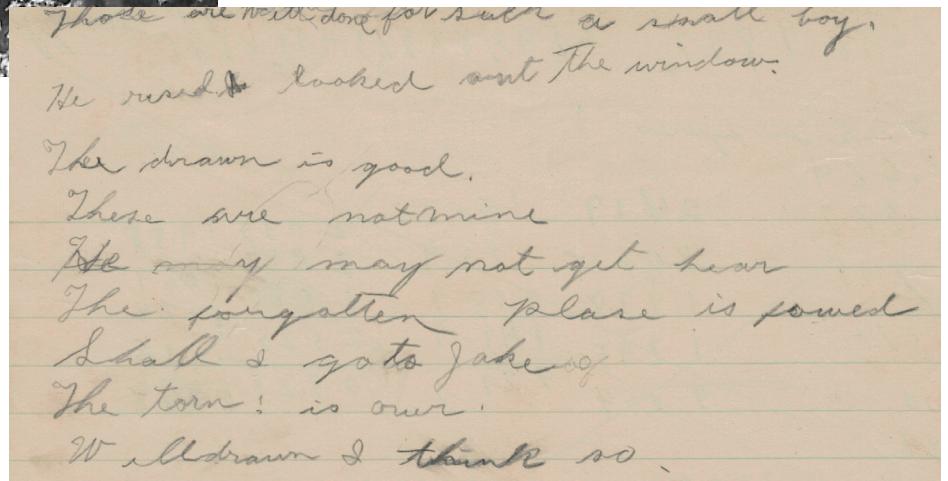 Those are Well done for such a small boy.
He rused & looked out The window.
The drawn is good.
These are not mine
He may may not get hear
The forgotten plase is fowed
Shall I go to Jake
The torn: is over.
Well drawn I think so.